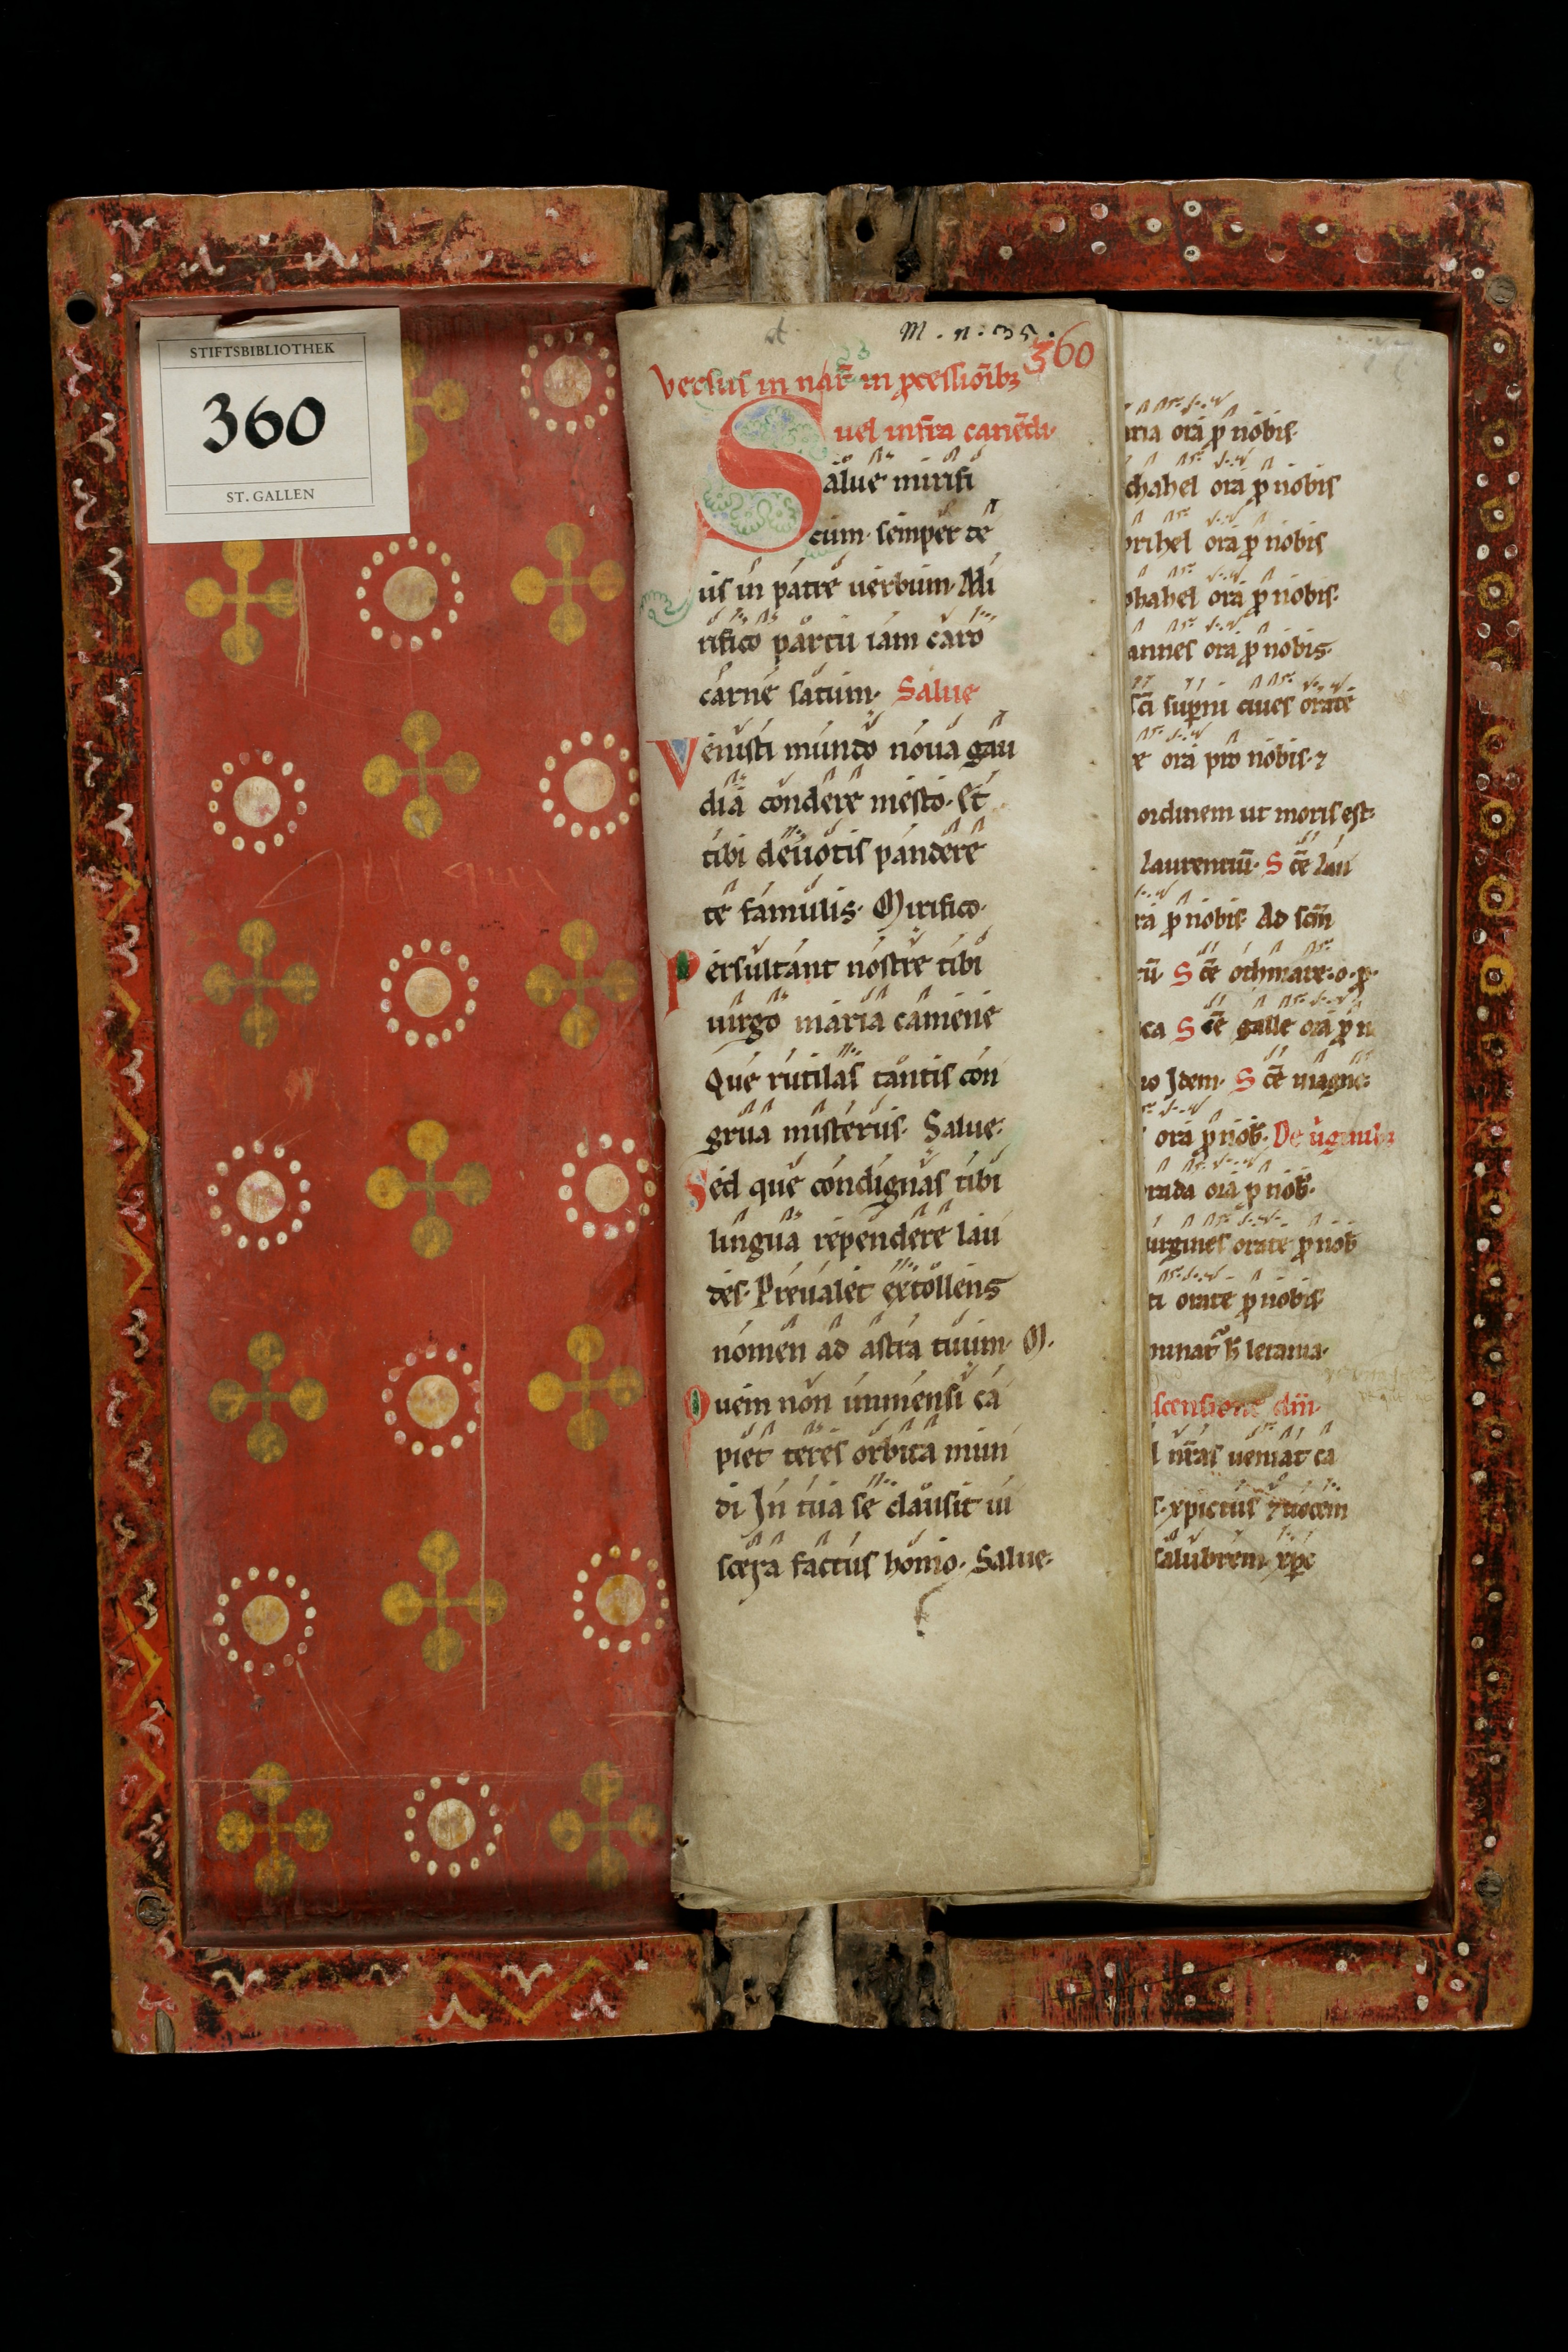 STIFTSBIBLIOTHEK
360
ST. GALLEN
M. n. 35.
360
Versus in nat̄ in ꝓcessiōibꝫ
uel infra canēdi.
Salue mirifi
cum. semper te
us in patre uerbum. Mi
rifico partu iam caro
carne satum. Salue
Venisti mundo noua gau
dia condere mesto. Et
tibi deuotis pandere
te famulis. Mirifico.
Persultant nostre tibi
uirgo maria camene
Que rutilas tantis con
grua misteriis. Salue.
Sed que condignas tibi
lingua rependere lau
des. Preualet extollens
nomen ad astra tuum. M.
Quem non immensi ca
piet teres orbita mun
di In tua se clausit ui
scera factus homo. Salue.
ria ora ꝓ nobis.
chahel ora ꝓ nobis
brihel ora ꝓ nobis
phahel ora ꝓ nobis.
annes ora ꝓ nobis.
sc̄i suꝑni ciues orate
e ora pro nobis. ⁊
ordinem ut moris est.
laurentiū. Sc̄e lau
ra ꝓ nobis. Ad sc̄m
tū. Sc̄e othmare. o. ꝓ.
ca Sc̄e galle ora ꝓ n
no Idem. Sc̄e magne.
ora ꝓ nob̄. De uginibꝫ
rada ora ꝓ nob̄.
uirgines orate ꝓ nob̄
ti orate ꝓ nobis
minat᷑ h̄ letania.
scensione dn̄i.
nr̄as ueniat ca
s. xpictus ⁊ uocem
salubrem. xp̄e